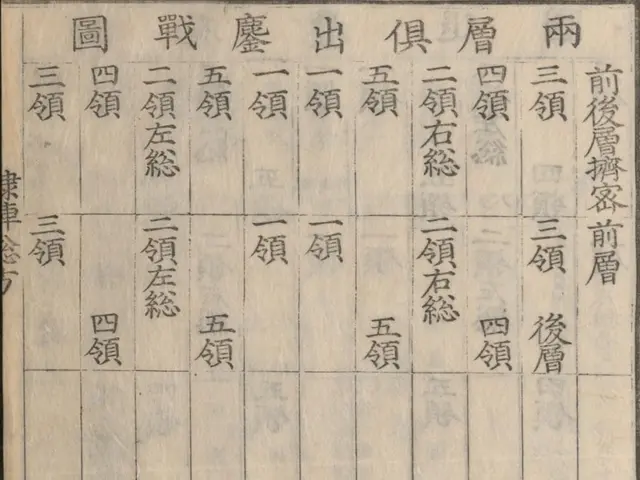 兩層俱出鏖戰圖
前後層擠密 前層
三領 三領 後層
四領 四領
二領右総 二領右総
五領 五領
一領 一領
一領 一領
五領 五領
二領左総 二領左総
四領 四領
三領 三領